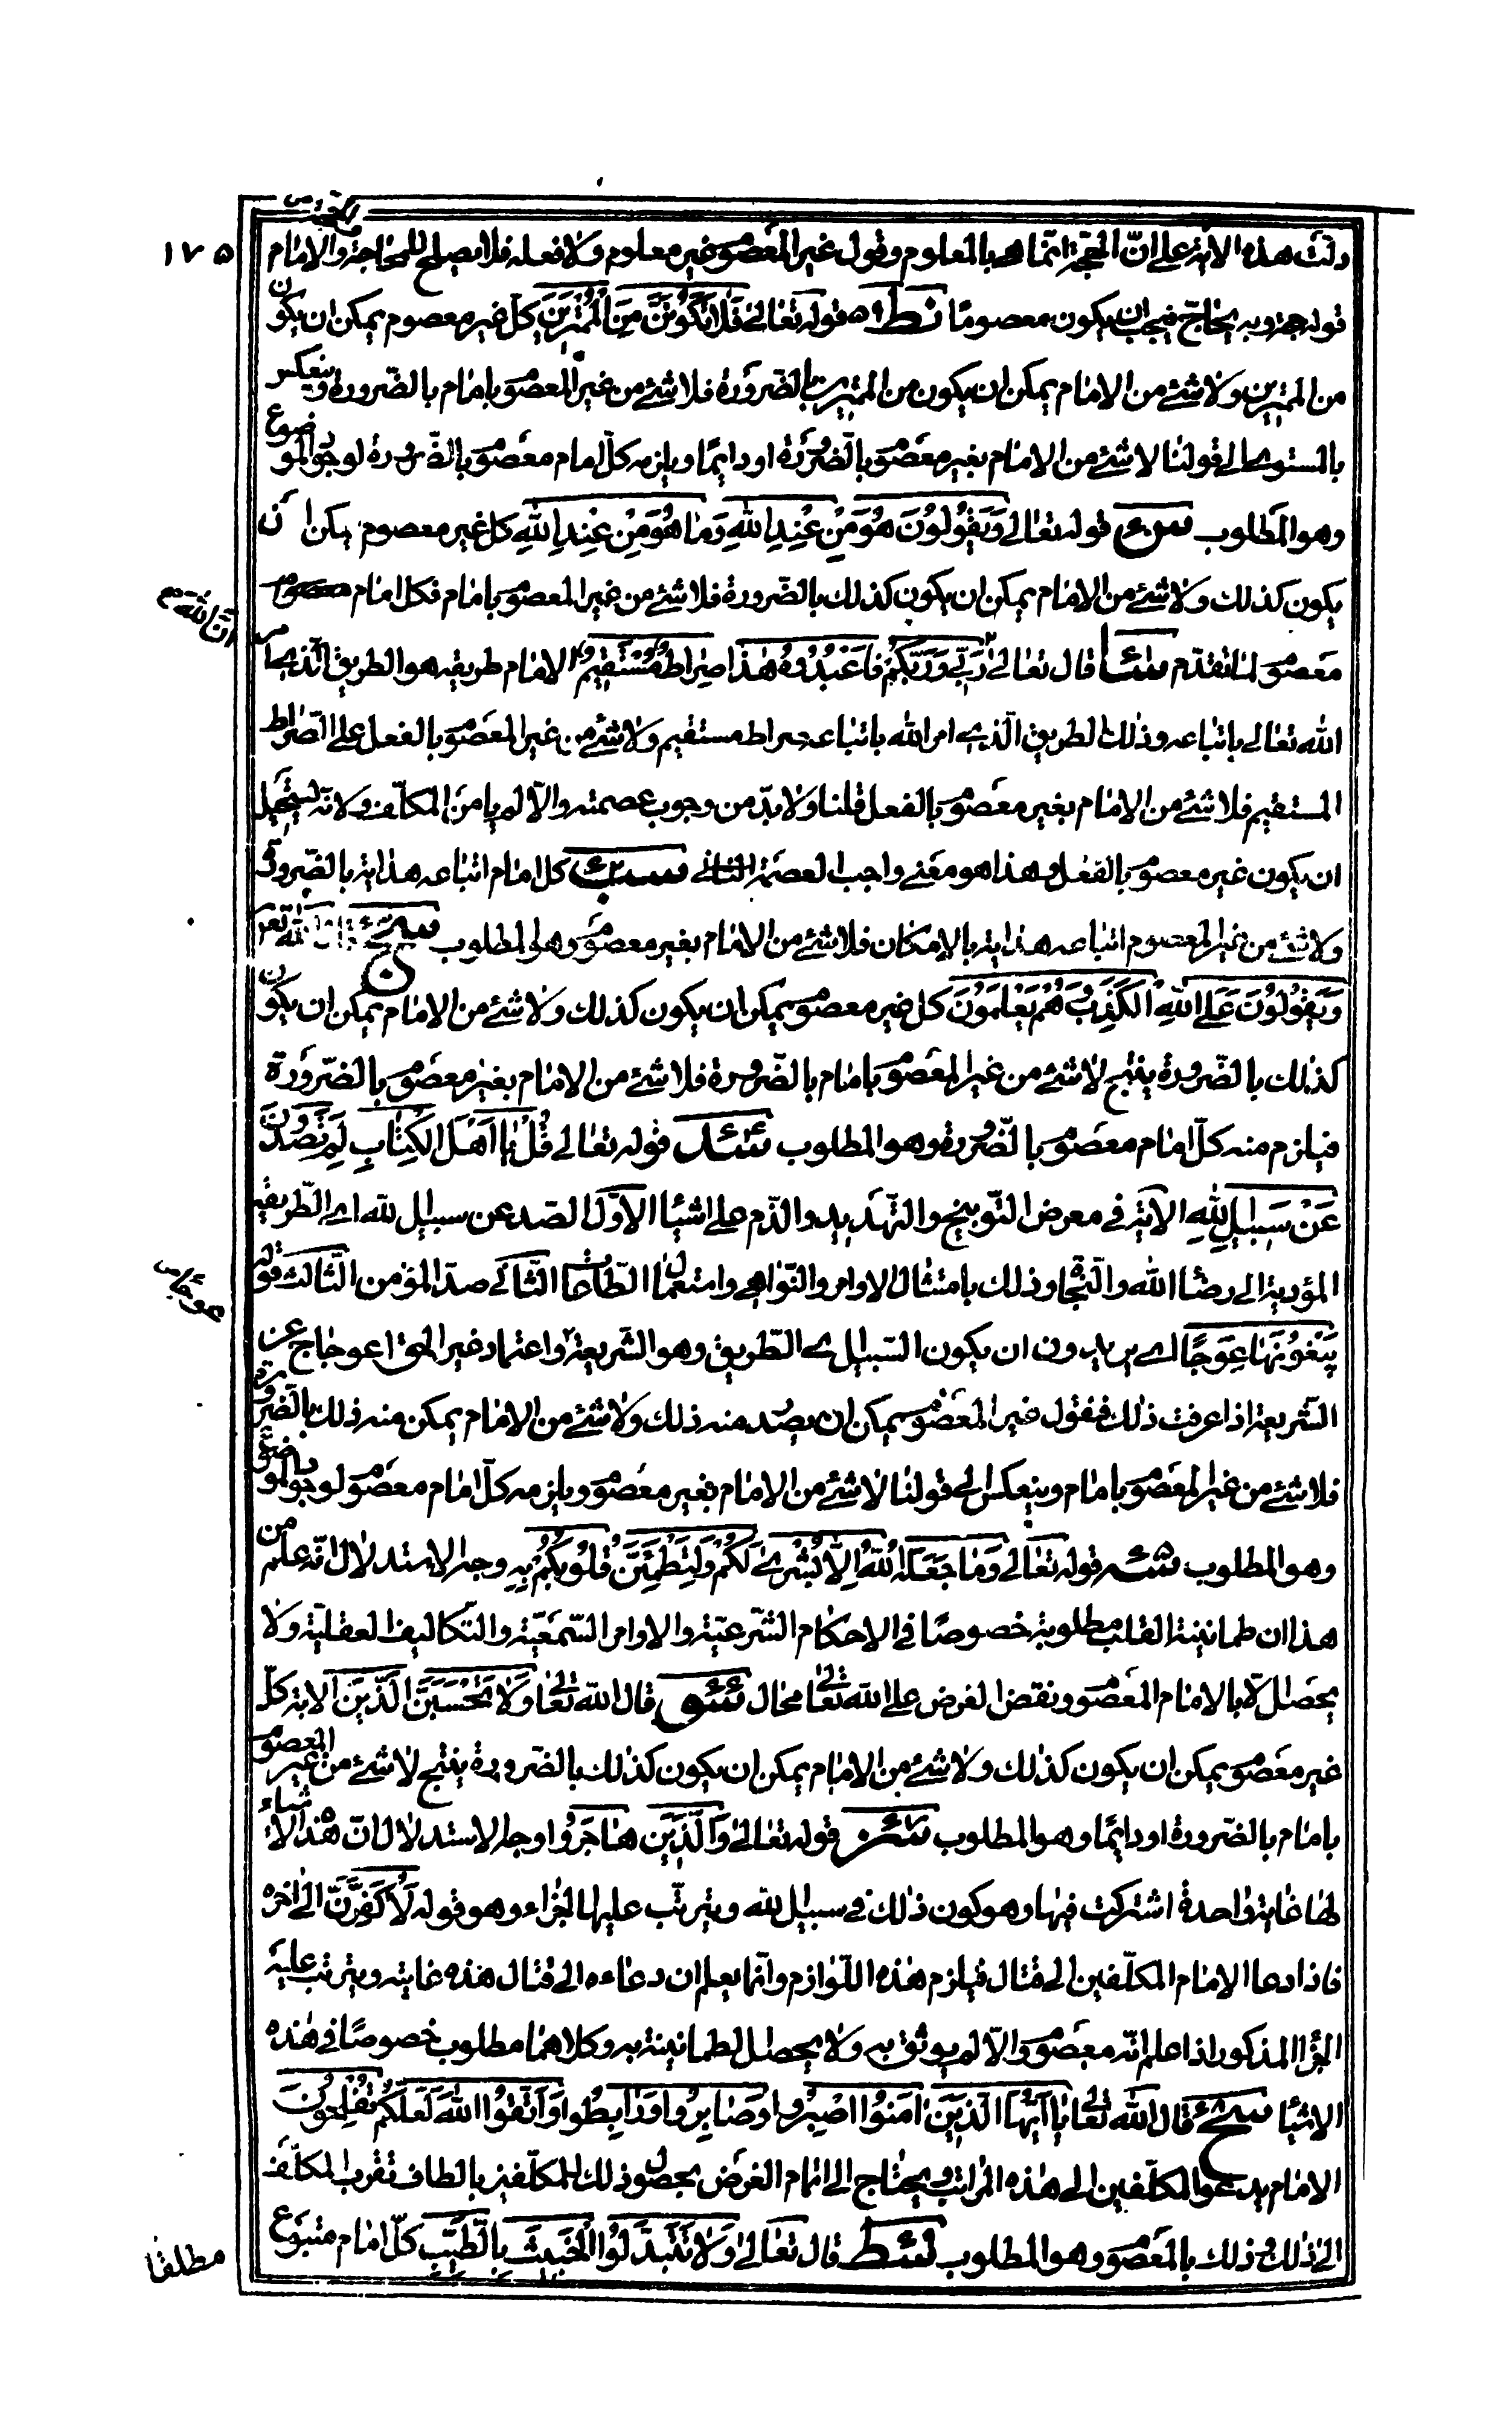 ١٧٥
دلّت هذه الاية على انّ الحجّة انّما هى بالمعلوم وقول غير المعصوم غير معلوم ولا فعله فلا يصلح للمحاجة والامام
قوله حجة وبه يحاجّ فيجب ان يكون معصومًا نط قوله تعالى فَلا تَكُونَنَّ مِنَ الْمُمْتَرِينَ كلّ غير معصوم يمكن ان يكون
من الممترين ولا شئ من الامام يمكن ان يكون من الممترين بالضرورة فلا شئ من غير المعصوم بامام بالضرورة وينعكس
بالمستوى الى قولنا لا شئ من الامام بغير معصوم بالضرورة او دايمًا ويلزمه كلّ امام معصوم بالضرورة لوجود الموضوع
وهو المطلوب س قوله تعالى وَيَقُولُونَ هُوَ مِنْ عِنْدِ اللهِ وَمَا هُوَ مِنْ عِنْدِ اللهِ كل غير معصوم يمكن ان
يكون كذلك ولا شئ من الامام يمكن ان يكون كذلك بالضّرورة فلا شئ من غير المعصوم بامام فكل امام
معصوم لما تقدّم سا قال تعالى رَبّى وَرَبُّكُمْ فَاعْبُدُوهُ هٰذا صِراطٌ مُسْتَقِيمٌ الامام طريقه هو الطريق الّذى امر
انّ الله
الله تعالى باتباعه وذلك الطريق الّذى امر الله باتباعه صراط مستقيم ولا شئ من غير المعصوم بالفعل على الصّراط
المستقيم فلا شئ من الامام بغير معصوم بالفعل قلنا ولا بدّ من وجوب عصمته والّا لم يامن المكلّف ولانّه يستحيل
ان يكون غير معصوم بالفعل وهذا هو معنى واجب العصمة سب كل امام اتباعه هداية بالضّرورة
ولا شئ من غير المعصوم اتباعه هداية بالامكان فلا شئ من الامام بغير معصوم وهو المطلوب سج قال الله تعالى
وَيَقُولُونَ عَلَى اللهِ الْكَذِبَ وَهُمْ يَعْلَمُونَ كل غير معصوم يمكن ان يكون كذلك ولا شئ من الامام يمكن ان يكون
كذلك بالضّرورة ينتج لا شئ من غير المعصوم بامام بالضّرورة فلا شئ من الامام بغير معصوم بالضّرورة
فيلزم منه كلّ امام معصوم بالضّرورة وهو المطلوب سد قوله تعالى قُلْ يٰا اَهْلَ الْكِتٰابِ لِمَ تَصُدُّونَ
عَنْ سَبِيلِ اللهِ الاية فى معرض التّوبيخ والتهديد والذّم على اشيا الاوّل الصّد عن سبيل الله اى الطّريقة
المؤدية الى رضا الله والنّجاة وذلك بامتثال الاوامر والنّواهى وامتعمال الطّاعات الثّانى صدّ المؤمن الثّالث قوله
تَبْغُونَهٰا عِوَجًا اى يريدون ان يكون السّبيل اى الطّريق وهو الشّريعة واعتماد غير الحق اعوجاج عن
الشّريعة اذا عرفت ذلك فنقول غير المعصوم يمكن ان يصدّ منه ذلك ولا شئ من الامام يمكن منه ذلك بالضّرورة
فلا شئ من غير المعصوم بامام وينعكس الى قولنا لا شئ من الامام بغير معصوم ويلزمه كلّ امام معصوم لوجود الموضوع
وهو المطلوب سه قوله تعالى وَمٰا جَعَلَهُ اللهُ اِلّا بُشْرىٰ لَكُمْ وَلِتَطْمَئِنَّ قُلُوبُكُمْ بِهِ وجه الاستدلال انّه علم من
هذا ان طمانينة القلب مطلوبة خصوصًا فى الاحكام الشّرعيّة والاوامر السّمعيّة والتّكاليف العقليّة ولا
يحصل الّا بالامام المعصوم ونقض الغرض على الله تعالى محال سو قال الله تعالى وَلا تَحْسَبَنَّ الَّذِينَ الاية كلّ
غير معصوم يمكن ان يكون كذلك ولا شئ من الامام يمكن ان يكون كذلك بالضّرورة ينتج لا شئ من غير المعصوم
بامام بالضرورة او دايمًا وهو المطلوب سز قوله تعالى وَالَّذِينَ هٰاجَرُوا وجه الاستدلال انّ هذه الاشياء
لها غاية واحدة اشتركت فيها وهو كون ذلك فى سبيل الله ويترتّب عليها الجزاء وهو قوله لَأُكَفِّرَنَّ الى اخره
فاذا دعا الامام المكلّفين الى قتال فيلزم هذه اللّوازم وانّما يعلم ان دعاءه الى قتال هذه غايته ويترتب عليه
الجزا المذكور اذا علم انّه معصوم والّا لم يوثق به ولا يحصل الطمانينة به وكلاهما مطلوب خصوصًا فى هذه
الاشيا سح قال الله تعالى يٰا اَيُّهَا الَّذِينَ اٰمَنُوا اصْبِرُوا وَصٰابِرُوا وَرٰابِطُوا وَاتَّقُوا اللهَ لَعَلَّكُمْ تُفْلِحُونَ
الامام يدعو المكلّفين الى هذه المراتب ويحتاج الى اتمام الغرض بحصول ذلك للمكلّفين بالطاف تقرب المكلّف
الى ذلك وذلك بالمعصوم وهو المطلوب سط قال تعالى وَلا تَتَبَدَّلُوا الْخَبِيثَ بِالطَّيِّبِ كلّ امام متبوع
مطلقا